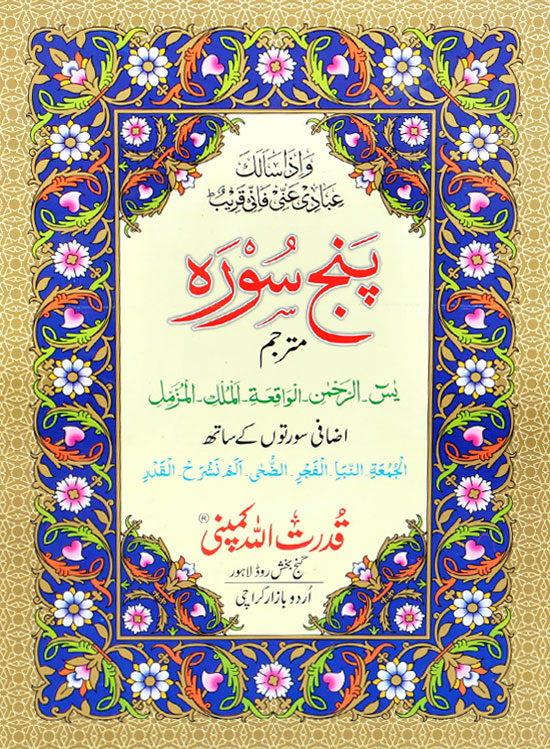 وَاِذَا سَاَلَكَ
عِبَادِیْ عَنِّیْ فَاِنِّیْ قَرِیْبٌ ؕ
پَنج سُوْرَہ
مترجم
یٰسٓ۔ الرَّحْمٰن۔ الْوَاقِعَة۔ الْمُلْك۔ الْمُزَّمِّل
اضافی سورتوں کے ساتھ
الْجُمُعَةِ۔ النَّبَاِ۔ الْفَجْرِ۔ الضُّحٰی۔ اَلَمْ نَشْرَحْ۔ الْقَدْرِ
قُدرت اللہ کمپنی ®
گنج بخش روڈ لاہور
اُردو بازار کراچی